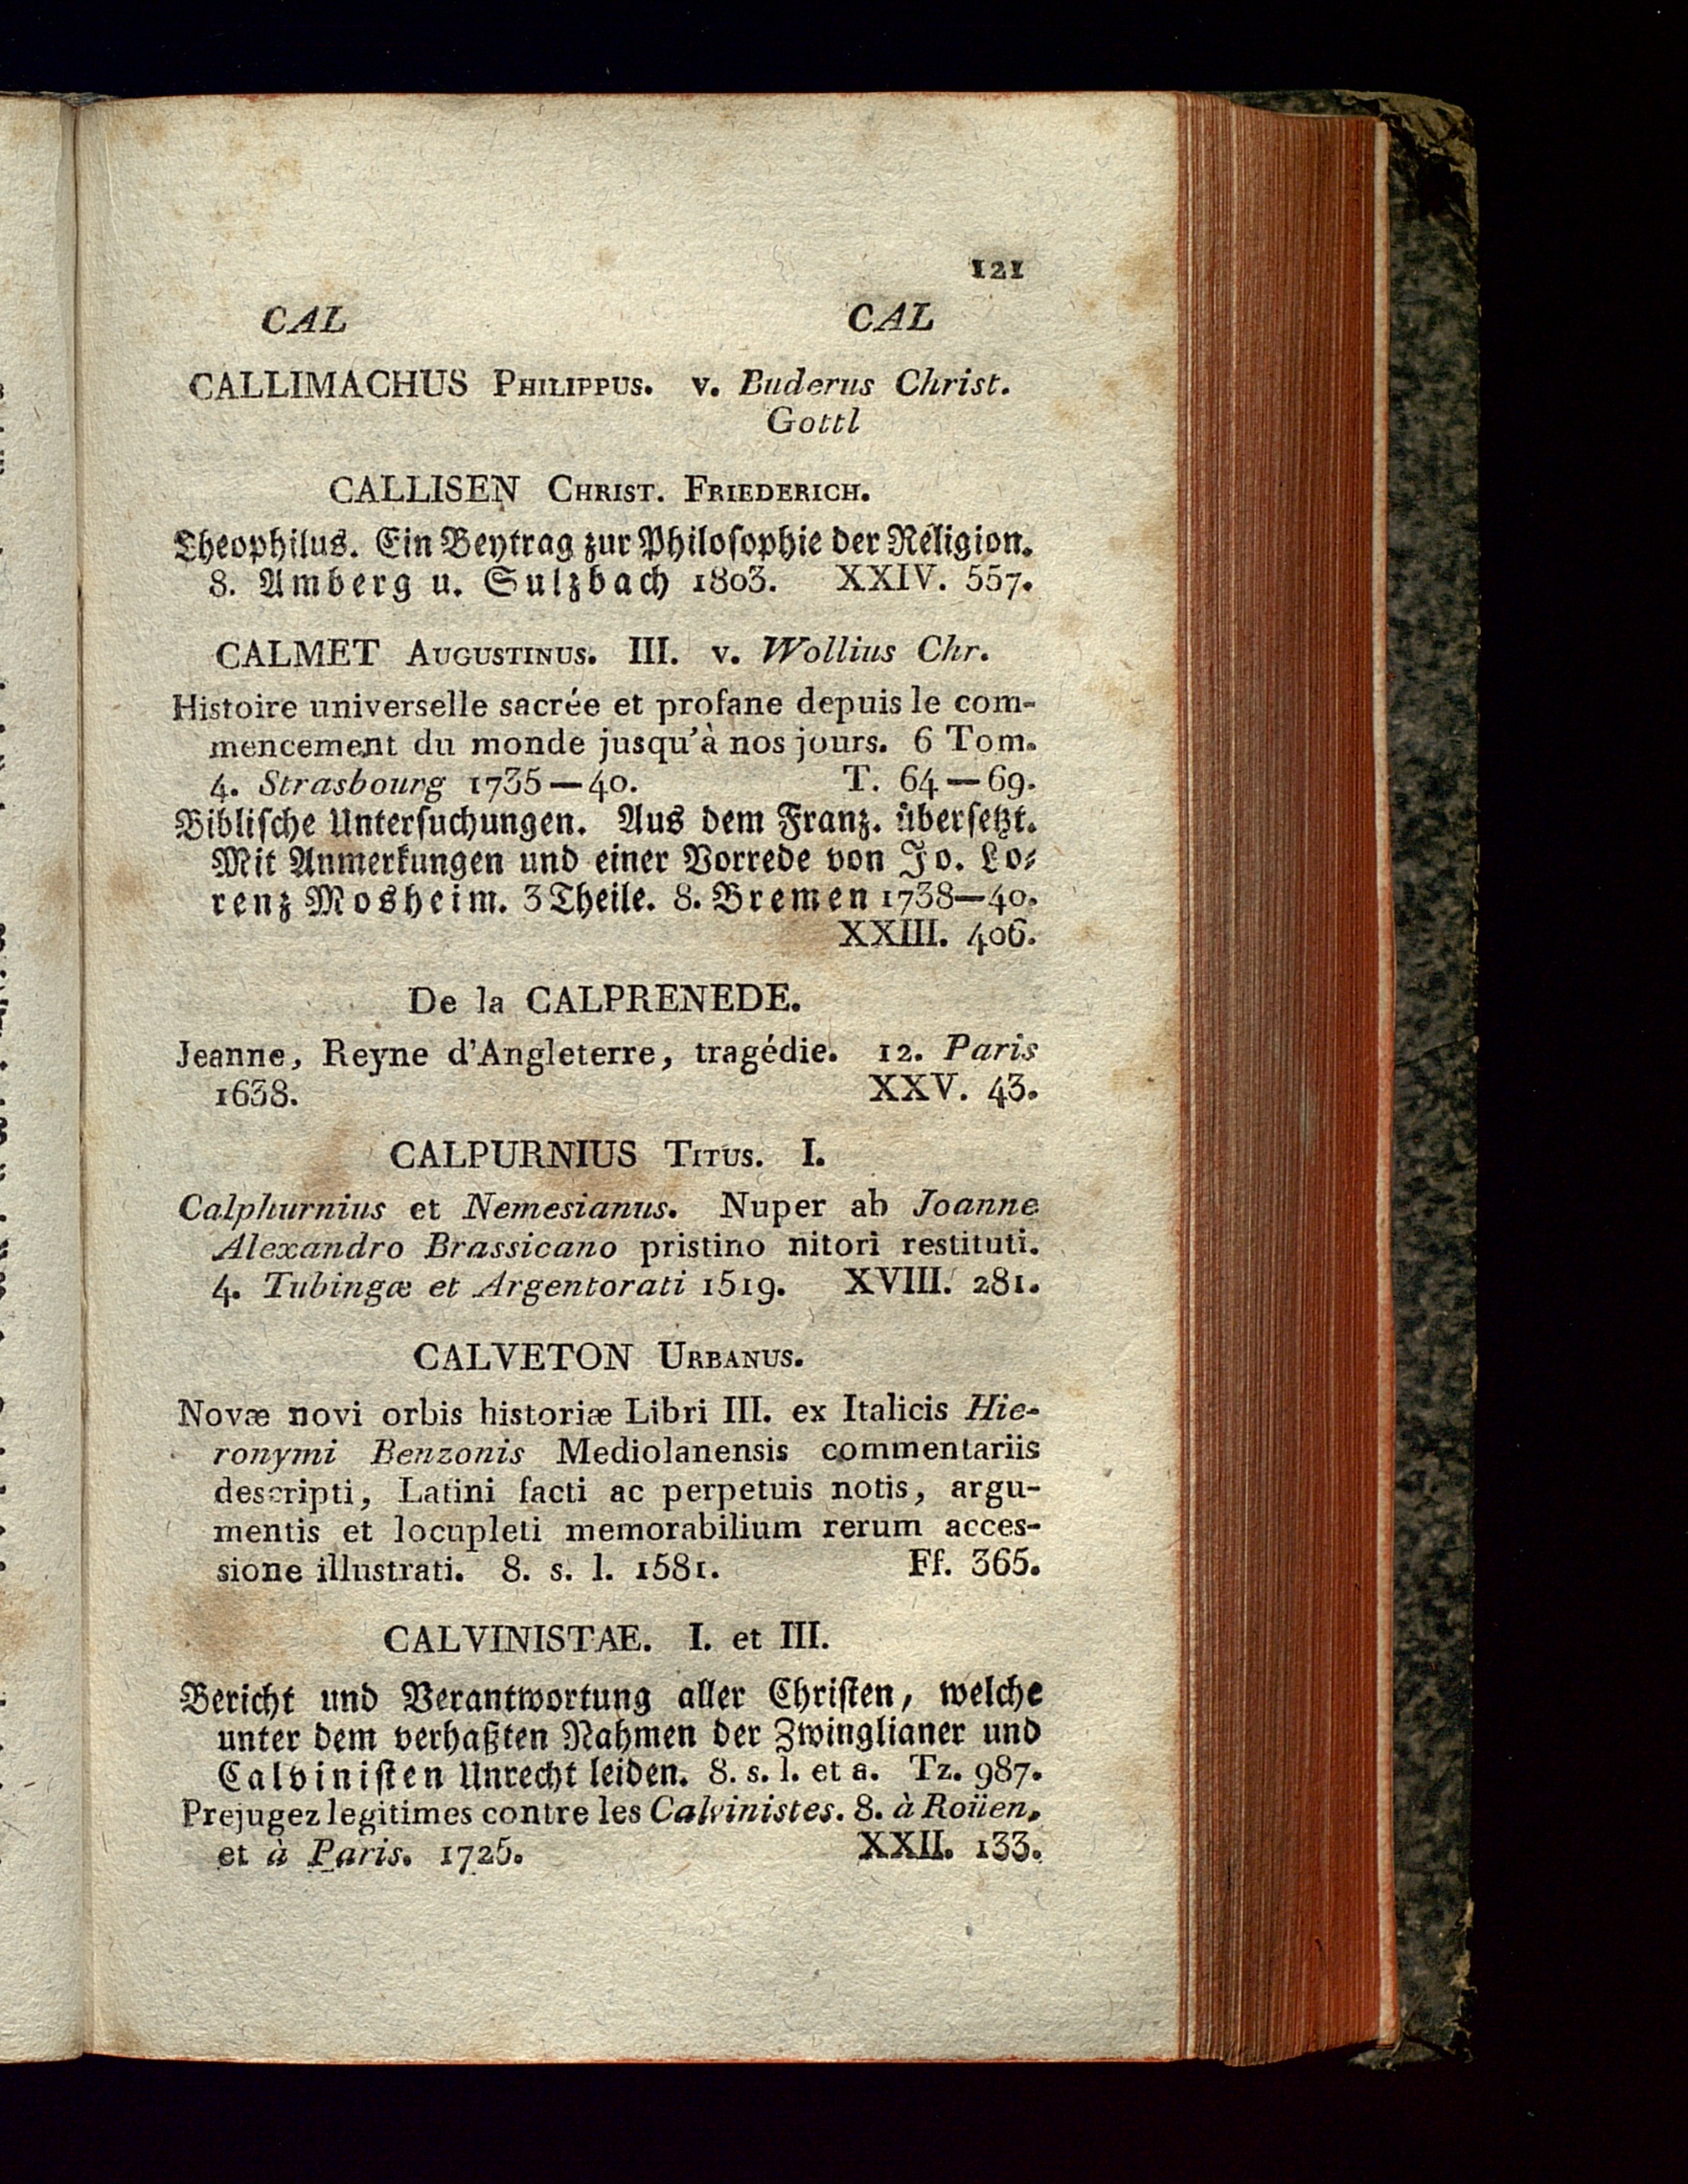 121
CAL CAL
CALLIMACHUS PHILIPPUS. v. Buderus Christ.
Gottl
CALLISEN CHRIST. FRIEDERICH.
Theophilus. Ein Beytrag zur Philosophie der Religion.
8. Amberg u. Sulzbach 1803. XXIV. 557.
CALMET AUGUSTINUS. III. v. Wollius Chr.
Histoire universelle sacrée et profane depuis le com-
mencement du monde jusqu'à nos jours. 6 Tom.
4. Strasbourg 1735—40. T. 64—69.
Biblische Untersuchungen. Aus dem Franz. übersetzt.
Mit Anmerkungen und einer Vorrede von Jo. Lo-
renz Mosheim. 3 Theile. 8. Bremen 1738—40.
XXIII. 406.
De la CALPRENEDE.
Jeanne, Reyne d'Angleterre, tragédie. 12. Paris
1638. XXV. 43.
CALPURNIUS TITUS. I.
Calphurnius et Nemesianus. Nuper ab Joanne
Alexandro Brassicano pristino nitori restituti.
4. Tubingæ et Argentorati 1519. XVIII. 281.
CALVETON URBANUS.
Novæ novi orbis historiæ Libri III. ex Italicis Hie-
ronymi Benzonis Mediolanensis commentariis
descripti, Latini facti ac perpetuis notis, argu-
mentis et locupleti memorabilium rerum acces-
sione illustrati. 8. s. l. 1581. Ff. 365.
CALVINISTAE. I. et III.
Bericht und Verantwortung aller Christen, welche
unter dem verhaßten Nahmen der Zwinglianer und
Calvinisten Unrecht leiden. 8. s. l. et a. Tz. 987.
Prejugez legitimes contre les Calvinistes. 8. à Roüen,
et à Paris. 1725. XXII. 133.